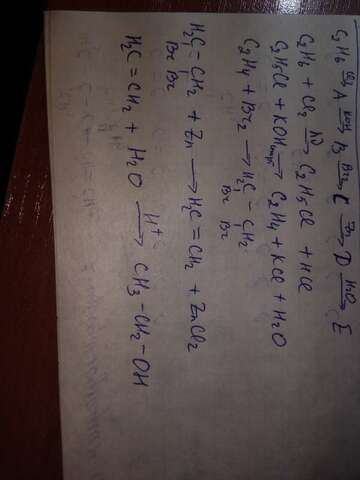 C₂H₆ →(Cl₂) A →(KOH) B →(Br₂) C →(Zn) D →(H₂O) E
C₂H₆ + Cl₂ → C₂H₅Cl + HCl
C₂H₅Cl + KOH → C₂H₄ + KCl + H₂O
C₂H₄ + Br₂ → H₂C – CH₂
Br Br
H₂C – CH₂ + Zn → H₂C = CH₂ + ZnCl₂
Br Br
H₂C = CH₂ + H₂O →(H⁺) CH₃–CH₂–OH